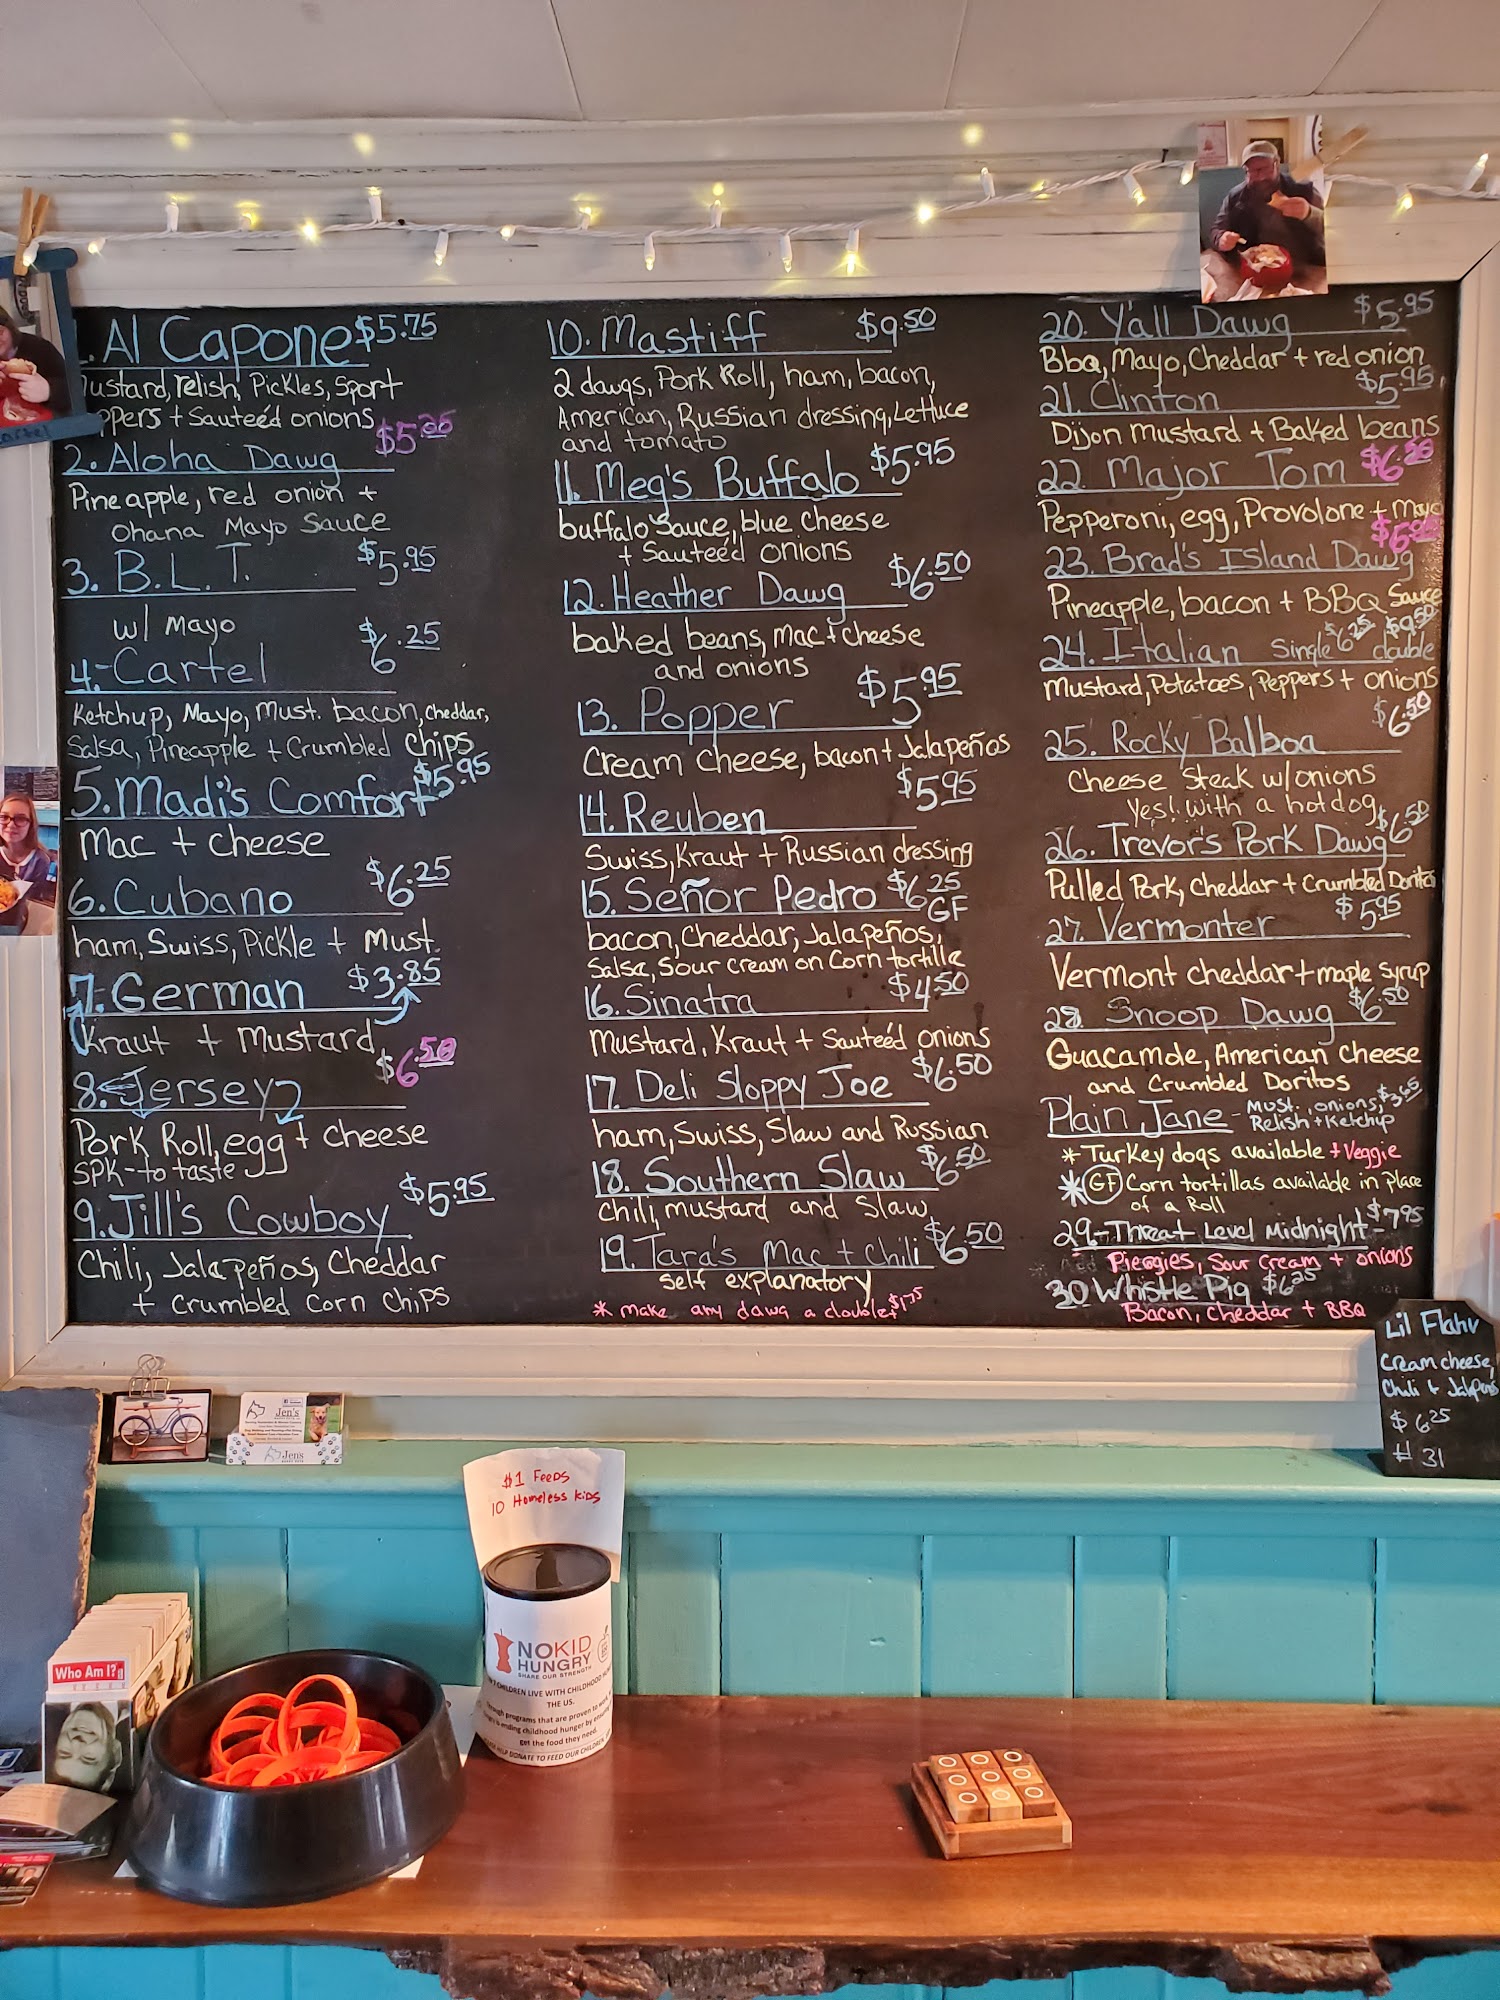 . Al Capone $5.75
ustard, relish, Pickles, Sport
ppers + Sauteéd onions
2. Aloha Dawg
Pineapple, red onion +
Ohana Mayo Sauce
3. B.L.T. $5.95
w/ Mayo
4. Cartel $6.25
Ketchup, Mayo, Must. bacon, Cheddar,
Salsa, Pineapple + Crumbled Chips
5. Madi's Comfort $5.95
Mac + cheese
6. Cubano $6.25
ham, Swiss, Pickle + Must.
7. German $3.85
Kraut + Mustard
8. Jersey $6.50
Pork Roll, egg + cheese
SPK - to taste
9. Jill's Cowboy $5.95
Chili, Jalapeños, Cheddar
+ Crumbled Corn Chips
10. Mastiff $9.50
2 dawgs, Pork Roll, ham, bacon,
American, Russian dressing, Lettuce
and tomato
11. Meg's Buffalo $5.95
buffalo Sauce, blue cheese
+ Sauteéd onions
12. Heather Dawg $6.50
baked beans, mac + cheese
and onions
13. Popper $5.95
Cream cheese, bacon + Jalapeños
14. Reuben $5.95
Swiss, Kraut + Russian dressing
15. Señor Pedro $6.25
GF
bacon, Cheddar, Jalapeños,
Salsa, Sour cream on Corn tortilla
16. Sinatra $4.50
Mustard, Kraut + Sauteéd onions
17. Deli Sloppy Joe $6.50
ham, Swiss, Slaw and Russian
18. Southern Slaw $6.50
Chili, mustard and Slaw
19. Tara's Mac + Chili $6.50
self explanatory
* make any dawg a double! $1.75
20. Ya'll Dawg $5.95
Bbq, Mayo, Cheddar + red onion
21. Clinton $5.95
Dijon Mustard + Baked beans
22. Major Tom $6.50
Pepperoni, egg, Provolone + Mayo
23. Brad's Island Dawg
Pineapple, bacon + BBQ Sauce
24. Italian Single $6.25 double $9.50
Mustard, Potatoes, Peppers + onions
25. Rocky Balboa $6.50
Cheese Steak w/onions
Yes! With a hotdog
26. Trevor's Pork Dawg $6.50
Pulled Pork, Cheddar + Crumbled Doritos
27. Vermonter $5.95
Vermont cheddar + maple syrup
28. Snoop Dawg $6.50
Guacamole, American cheese
and Crumbled Doritos
Plain Jane - Must., onions,
Relish + Ketchup
* Turkey dogs available + Veggie
* GF Corn tortillas available in place
of a Roll
29. Threat Level Midnight - $7.95
Pierogies, Sour Cream + onions
30 Whistle Pig $6.25
Bacon, Cheddar + BBQ
Lil Flahv
Cream cheese,
Chili + Jalapeños
$6.25
# 31
Jen's
Jen's
$1 Feeds
10 Homeless Kids
NO KID
HUNGRY
SHARE OUR STRENGTH
CHILDREN LIVE WITH CHILDHOOD
THE US.
programs that are proven to work
ending childhood hunger by
get the food they need.
HELP DONATE TO FEED OUR CHILDREN
Who Am I?